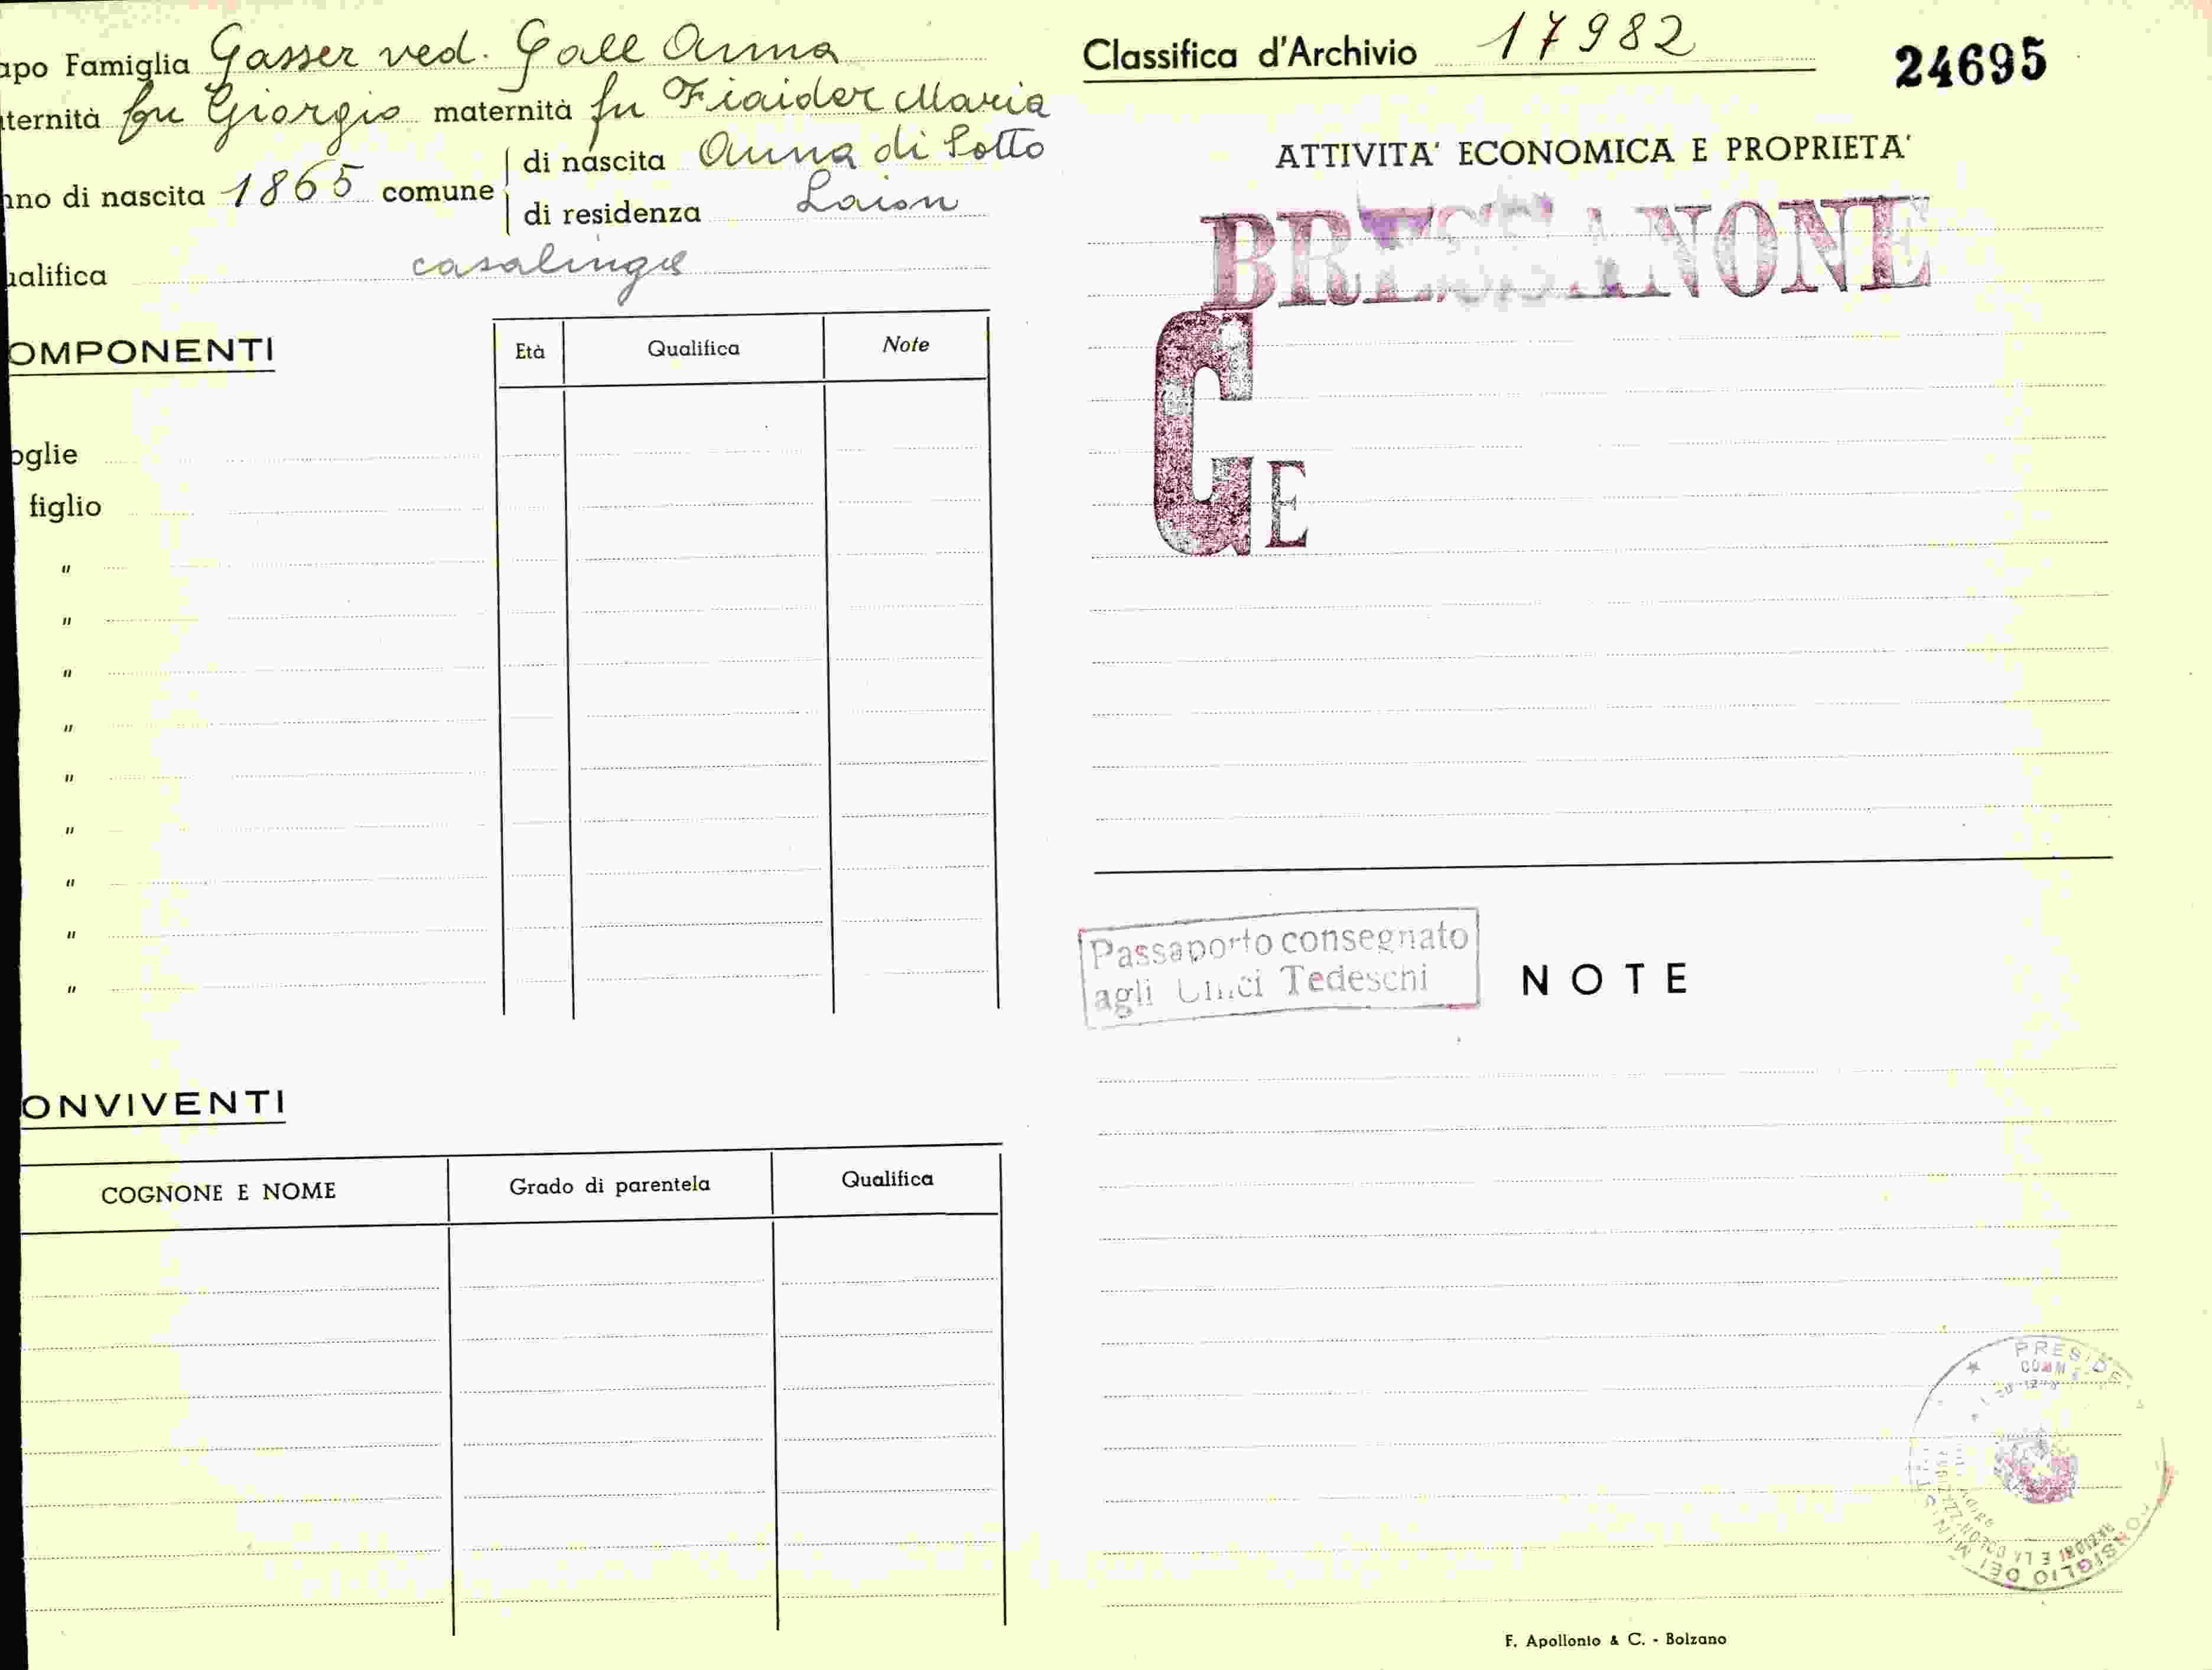 apo Famiglia Gasser ved. Gall Anna
ternità fu Giorgio maternità fu Fiaider Maria
nno di nascita 1865 comune di nascita Auna di Sotto
di residenza Laion
ualifica casalinga
OMPONENTI Età Qualifica Note
oglie
figlio
"
"
"
"
"
"
"
"
"
ONVIVENTI
COGNONE E NOME Grado di parentela Qualifica
Classifica d'Archivio 17982
24695
ATTIVITA' ECONOMICA E PROPRIETA'
BRESSANONE
GE
Passaporto consegnato
agli Uffici Tedeschi
NOTE
CONSIGLIO DEI MINIST
F. Apollonio & C. - Bolzano